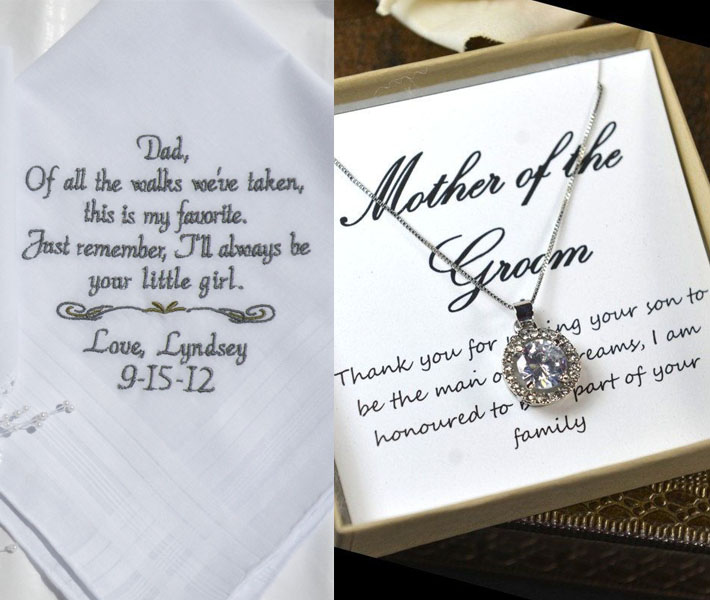 Dad,
Of all the walks we've taken,
this is my favorite.
Just remember, I'll always be
your little girl.
Love, Lyndsey
9-15-12
Mother of the
Groom
Thank you for your son to
be the man I am
honoured to part of your
family